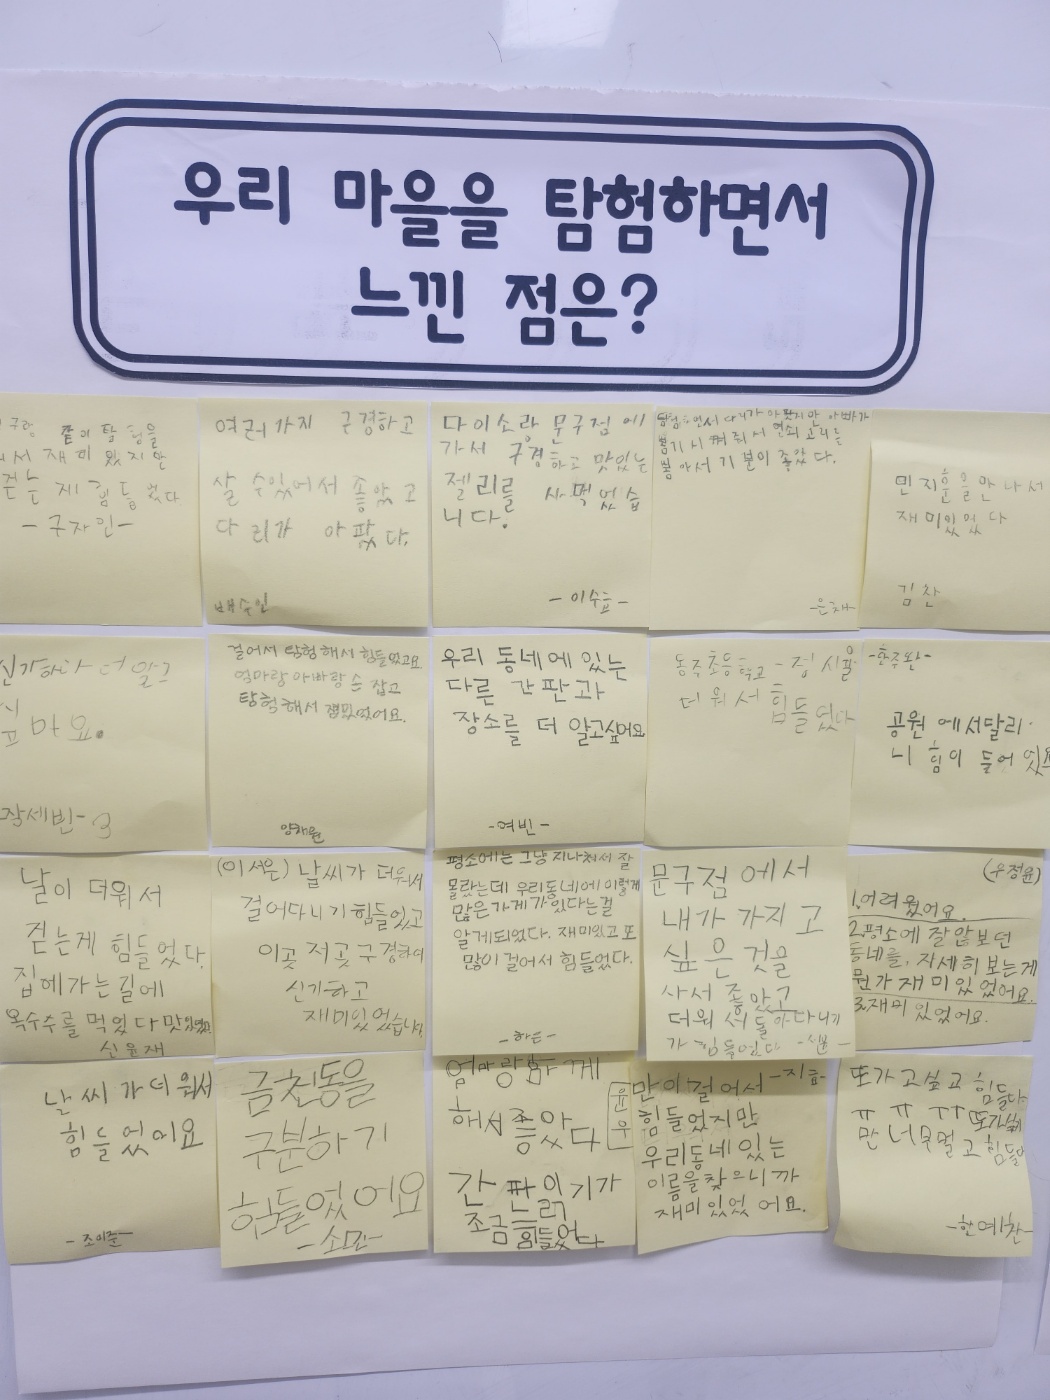 우리 마을을 탐험하면서
느낀 점은?
같이 탐험을
서 재미 있지만
걷는 게 힘들었다
-구자인-
여러가지 구경하고
살 수있어서 좋았고
다리가 아팠다.
다이소랑 문구점에
가서 구경하고 맛있는
젤리를 사먹었습
니다.
탐험하면서 다리가 아팠지만 아빠가
뽑기 시켜줘서 연쇠고리를
뽑아서 기분이 좋았다.
-은채-
민지훈을 만나서
재미있었다
김찬
신기하다 더 알고
싶어요.
걸어서 탐험해서 힘들었고요
엄마랑 아빠랑 손 잡고
탐험해서 잼있었어요.
우리 동네에 있는
다른 간판과
장소를 더 알고싶어요
-여빈-
동주초등학교 - 정시율
더워서 힘들었다
-한주완-
공원에서달리
니 힘이 들어
날이 더워서
걷는게 힘들었다.
집에가는길에
옥수수를 먹었다 맛있었다
신윤재
(이서은) 날씨가 더워서
걸어다니기 힘들었고
이곳 저곳 구경하여
신기하고
재미있었습니다.
평소에는 그냥 지나쳐서 잘
몰랐는데 우리동네에 이렇게
많은 가게가있다는걸
알게되었다. 재미있고 또
많이 걸어서 힘들었다.
-하은-
문구점에서
내가 가지고
싶은 것을
사서 좋았고
더워서 돌아다니기
가 힘들었다
(우정윤)
1.어려웠어요.
2.평소에 잘 않보던
동네를, 자세히 보는게
뭔가 재미있었어요.
3.재미있었어요.
날씨가더워서
힘들었어요
-조이준-
금천동을
구분하기
힘들었어요
-소민-
엄마랑함께
해서좋았다
윤우
간판이기가
조금
힘들었다
많이걸어서 -지효-
힘들었지만
우리동네있는
이름을찾으니까
재미있었어요.
또가고싶고 힘들다
ㅠㅠㅠ 또가싶
만 너무멀고 힘들
-한예찬-